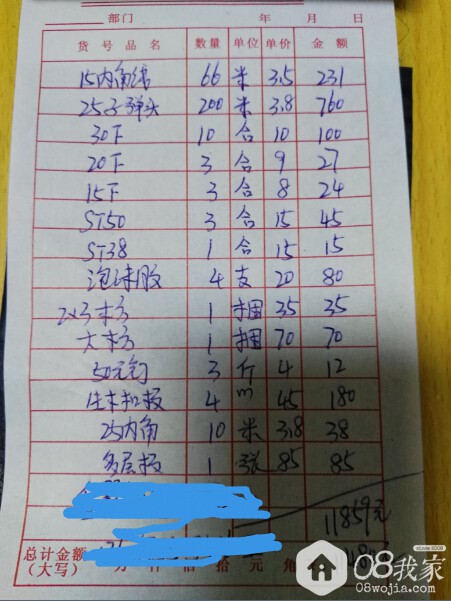 部门 年 月 日
货号品名 数量 单位 单价 金额
15内角线 66 米 3.5 231
25子弹头 200 米 3.8 760
30下 10 合 10 100
20下 3 合 9 27
15下 3 合 8 24
ST50 3 合 15 45
ST38 1 合 15 15
泡沫胶 4 支 20 80
2x3木方 1 捆 35 35
大木方 1 捆 70 70
50元钉 3 斤 4 12
生木扣板 4 m 45 180
25内角 10 米 3.8 38
多层板 1 张 85 85
11859元
总计金额
(大写) 万 仟 佰 拾 元 角
08我家
08wojia.com